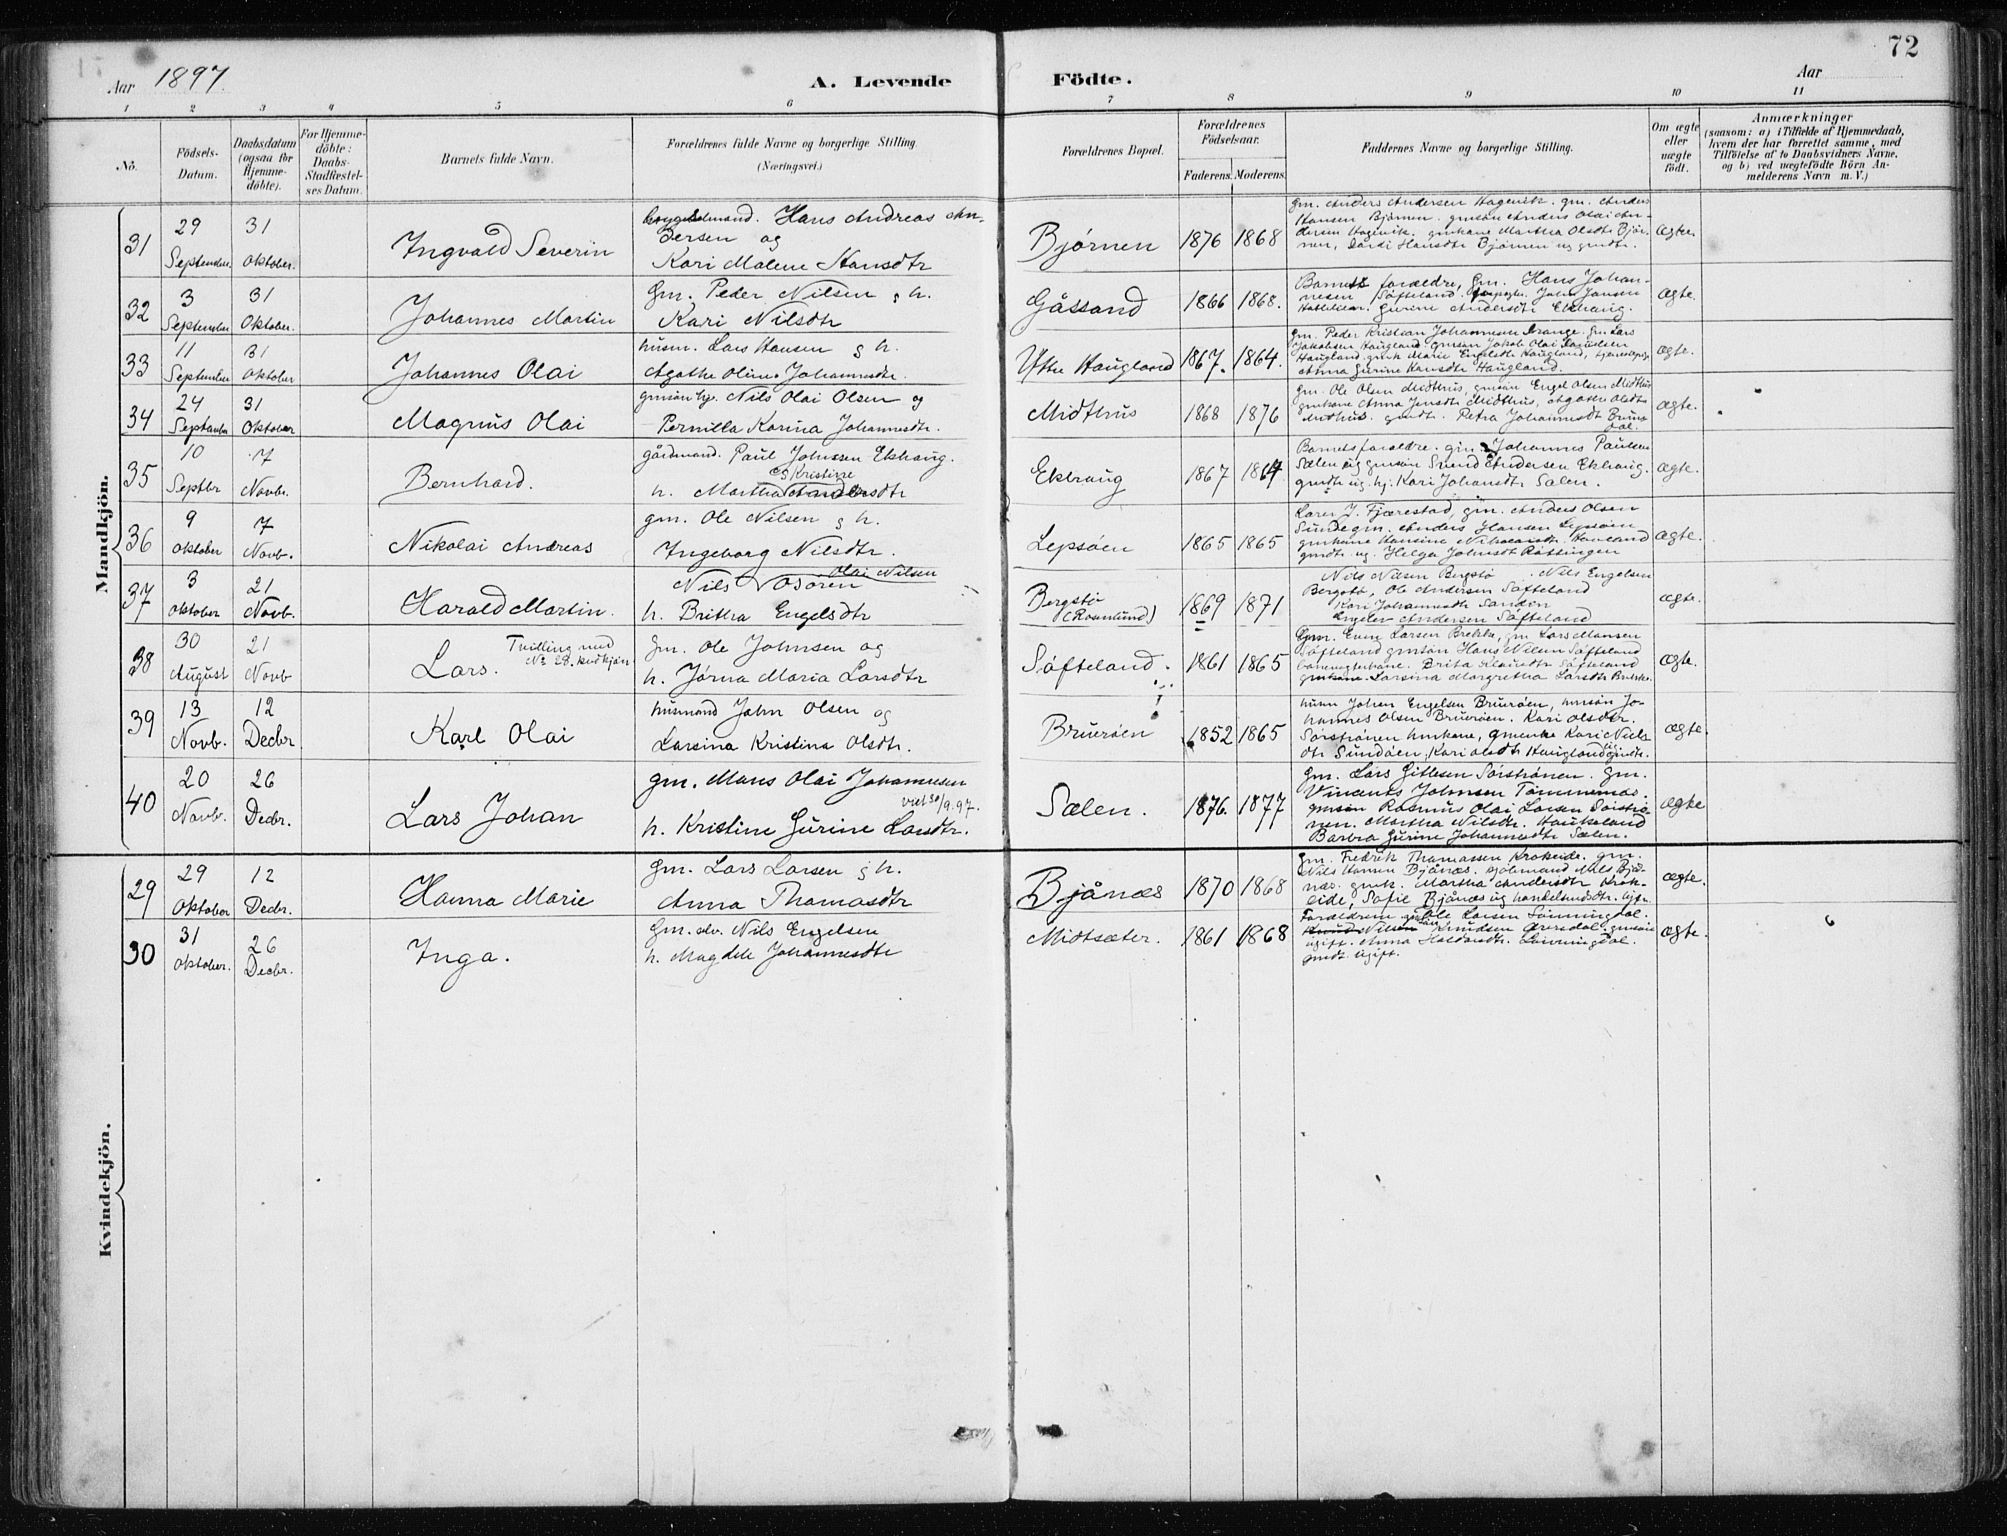 72
Aar 1897.
A. Levende Födte.
Aar
1 2 3 4 5 6 7 8 9 10 11
No.
Födsels-
Datum.
Daabsdatum
(ogsaa for
Hjemme-
döbte).
For Hjemme-
döbte:
Daabs-
Stadfæstel-
ses Datum.
Barnets fulde Navn.
Forældrenes fulde Navne og borgerlige Stilling
(Næringsvei.)
Forældrenes Bopæl.
Forældrenes
Födselsaar.
Faderens. Moderens.
Faddernes Navne og borgerlige Stilling.
Om ægte
eller
uægte
født.
Anmærkninger
(saasom: a) i Tilfælde af Hjemmedaab,
hvem der har forrettet samme, med
Tilföielse af to Daabsvidners Navne,
og b) ved uægtefödte Börn An-
melderens Navn m. V.)
Mandkjön.
31
29
September
31
Oktober.
Ingvald Severin
Hans Andreas An-
dersen og
Kari Malene Hansdtr
Bjørnen
1876 1868
gm. Anders Andersen Hagevik. gm. Anders
Hansen Bjørnen. gmsøn Anders Olai An-
dersen Hagevik. gmkone Martha Olsdtr Bjør-
nen, Hansdtr Bjørnen ug gmdtr.
Ægte.
32
3
September
31
Oktober.
Johannes Martin
Gm. Peder Nilsen g h.
Kari Nilsdtr
Gåssand
1866 1868.
Barnets forældre, Gm. Hans Johan-
nesen Søfteland. John Jansen
Gurine Andersdtr Ekhaug.
Ægte.
33
11
September
31
Oktober
Johannes Olai
husm. Lars Hansen g h.
Agathe Oline Johannesdtr.
Ytre Haugland
1867. 1864.
Gm. Peder Kristian Johannesen Drange. Gm Lars
Jakobsen Haugland gmsøn Jakob Olai
Haugland. gmk Marie Engelsdtr Haugland,
Anna Gurine Hansdtr Haugland.
Ægte.
34
24
September
31
Oktober
Magnus Olai
gmsøn hj. Nils Olai Olsen og
Pernilla Karina Johannesdtr.
Midthus
1868 1876
Gm. Ole Olsen Midthus, gmsøn Engel Olsen Midthus
gmkone Anna Jensdtr Midthus, Agathe Olsdtr
Midthus. gmdtr. Petra Johannesdtr
Ægte.
35
10
Septbr
7
Novb.
Bernhard.
gårdmand. Paul Johnsen Ekhaug.
og Kristine
h. Martha Andersdtr
Ekhaug
1867 1864
Barnets forældre. gm. Johannes Paulsen
Sælen og gmsøn Svend Andersen Ekhaug.
gmdtr ug. hj. Kari Johansdtr Sælen.
Ægte.
36
9
Oktober
7
Novb.
Nikolai Andreas
gm. Ole Nilsen g h.
Ingeborg Nilsdtr.
Lepsøen
1865 1865
Lærer J. Fjærestad, gm. Anders Olsen
Sunde gm. Anders Hansen Lepsøen
gmkone Hansine
gmdtr ug. Helga Johnsdtr Røttingen
Ægte.
37
3
Oktober
21
Novb.
Harald Martin.
Olai Nilsen
Nils Osøren
h. Britha Engelsdtr
Bergstø
(Rosenlund)
1869 1871
Nils Nilsen Bergstø. Nils Engelsen
Bergstø, Ole Andersen Søfteland
Kari Johannesdtr Sanden
Andersen Søfteland
Ægte.
38
30
August
21
Novb
Lars.
Tvilling med
No 28. kvdkjøn
Gm. Ole Johnsen og
h. Jørna Maria Larsdtr
Søfteland.
1861 1865
Gm. Even Larsen Brekke, gm Lars Monsen
Søfteland gmsøn Hans Nilsen Søfteland
banevogterkone. Brita Klausdtr Søfteland
gmkone. Larsina Margretha Larsdtr Brekke.
Ægte.
39
13
Novb.
12
Decbr
Karl Olai
husmand John Olsen og
Larsina Kristina Olsdtr.
Bruerøen
1852 1865
husm Johan Engelsen Bruerøen, hmsøn Jo-
hannes Olsen Bruerøen. Kari Olsdtr.
Sørstrønen hmkone, gmenke Kari Niels-
dtr Sundøen, Kari Olsdtr Haugland ug gmdtr.
Ægte.
40
20
Novb.
26
Decbr.
Lars Johan
gm. Mons Olai Johannesen
viet 30/9. 97.
h. Kristine Gurine Larsdtr.
Sælen.
1876. 1877
Gm. Lars Gitlesen Sørstrønen. Gm.
Vincents Johnsen Tømmernæs.
gmsøn Rasmus Olai Larsen Sørstrø-
nen. Martha Nilsdtr. Haukeland
Barbra Gurine Johannesdtr Sælen.
Ægte
Kvindekjön.
29
29
Oktober
12
Decbr.
Hanna Marie
Gm. Lars Larsen g h.
Anna Thomasdtr
Bjånæs
1870 1868
Gm. Fredrik Thomassen Krokeide. gm.
Nils Hansen Bjånæs. Nils Bjå-
næs. gmk. Martha Andersdtr Krok-
eide, Sofie Bjånæs ug
Ægte.
30
31
Oktober.
26
Decbr.
Inga.
Gm. slv. Nils Engelsen
h. Magdele Johannesdtr
Midtsæter.
1861 1868
Forældrene Ole Larsen
Nilsen Knudsen gmsøn
ugift. Anna
gmdtr ugift.
Ægte.